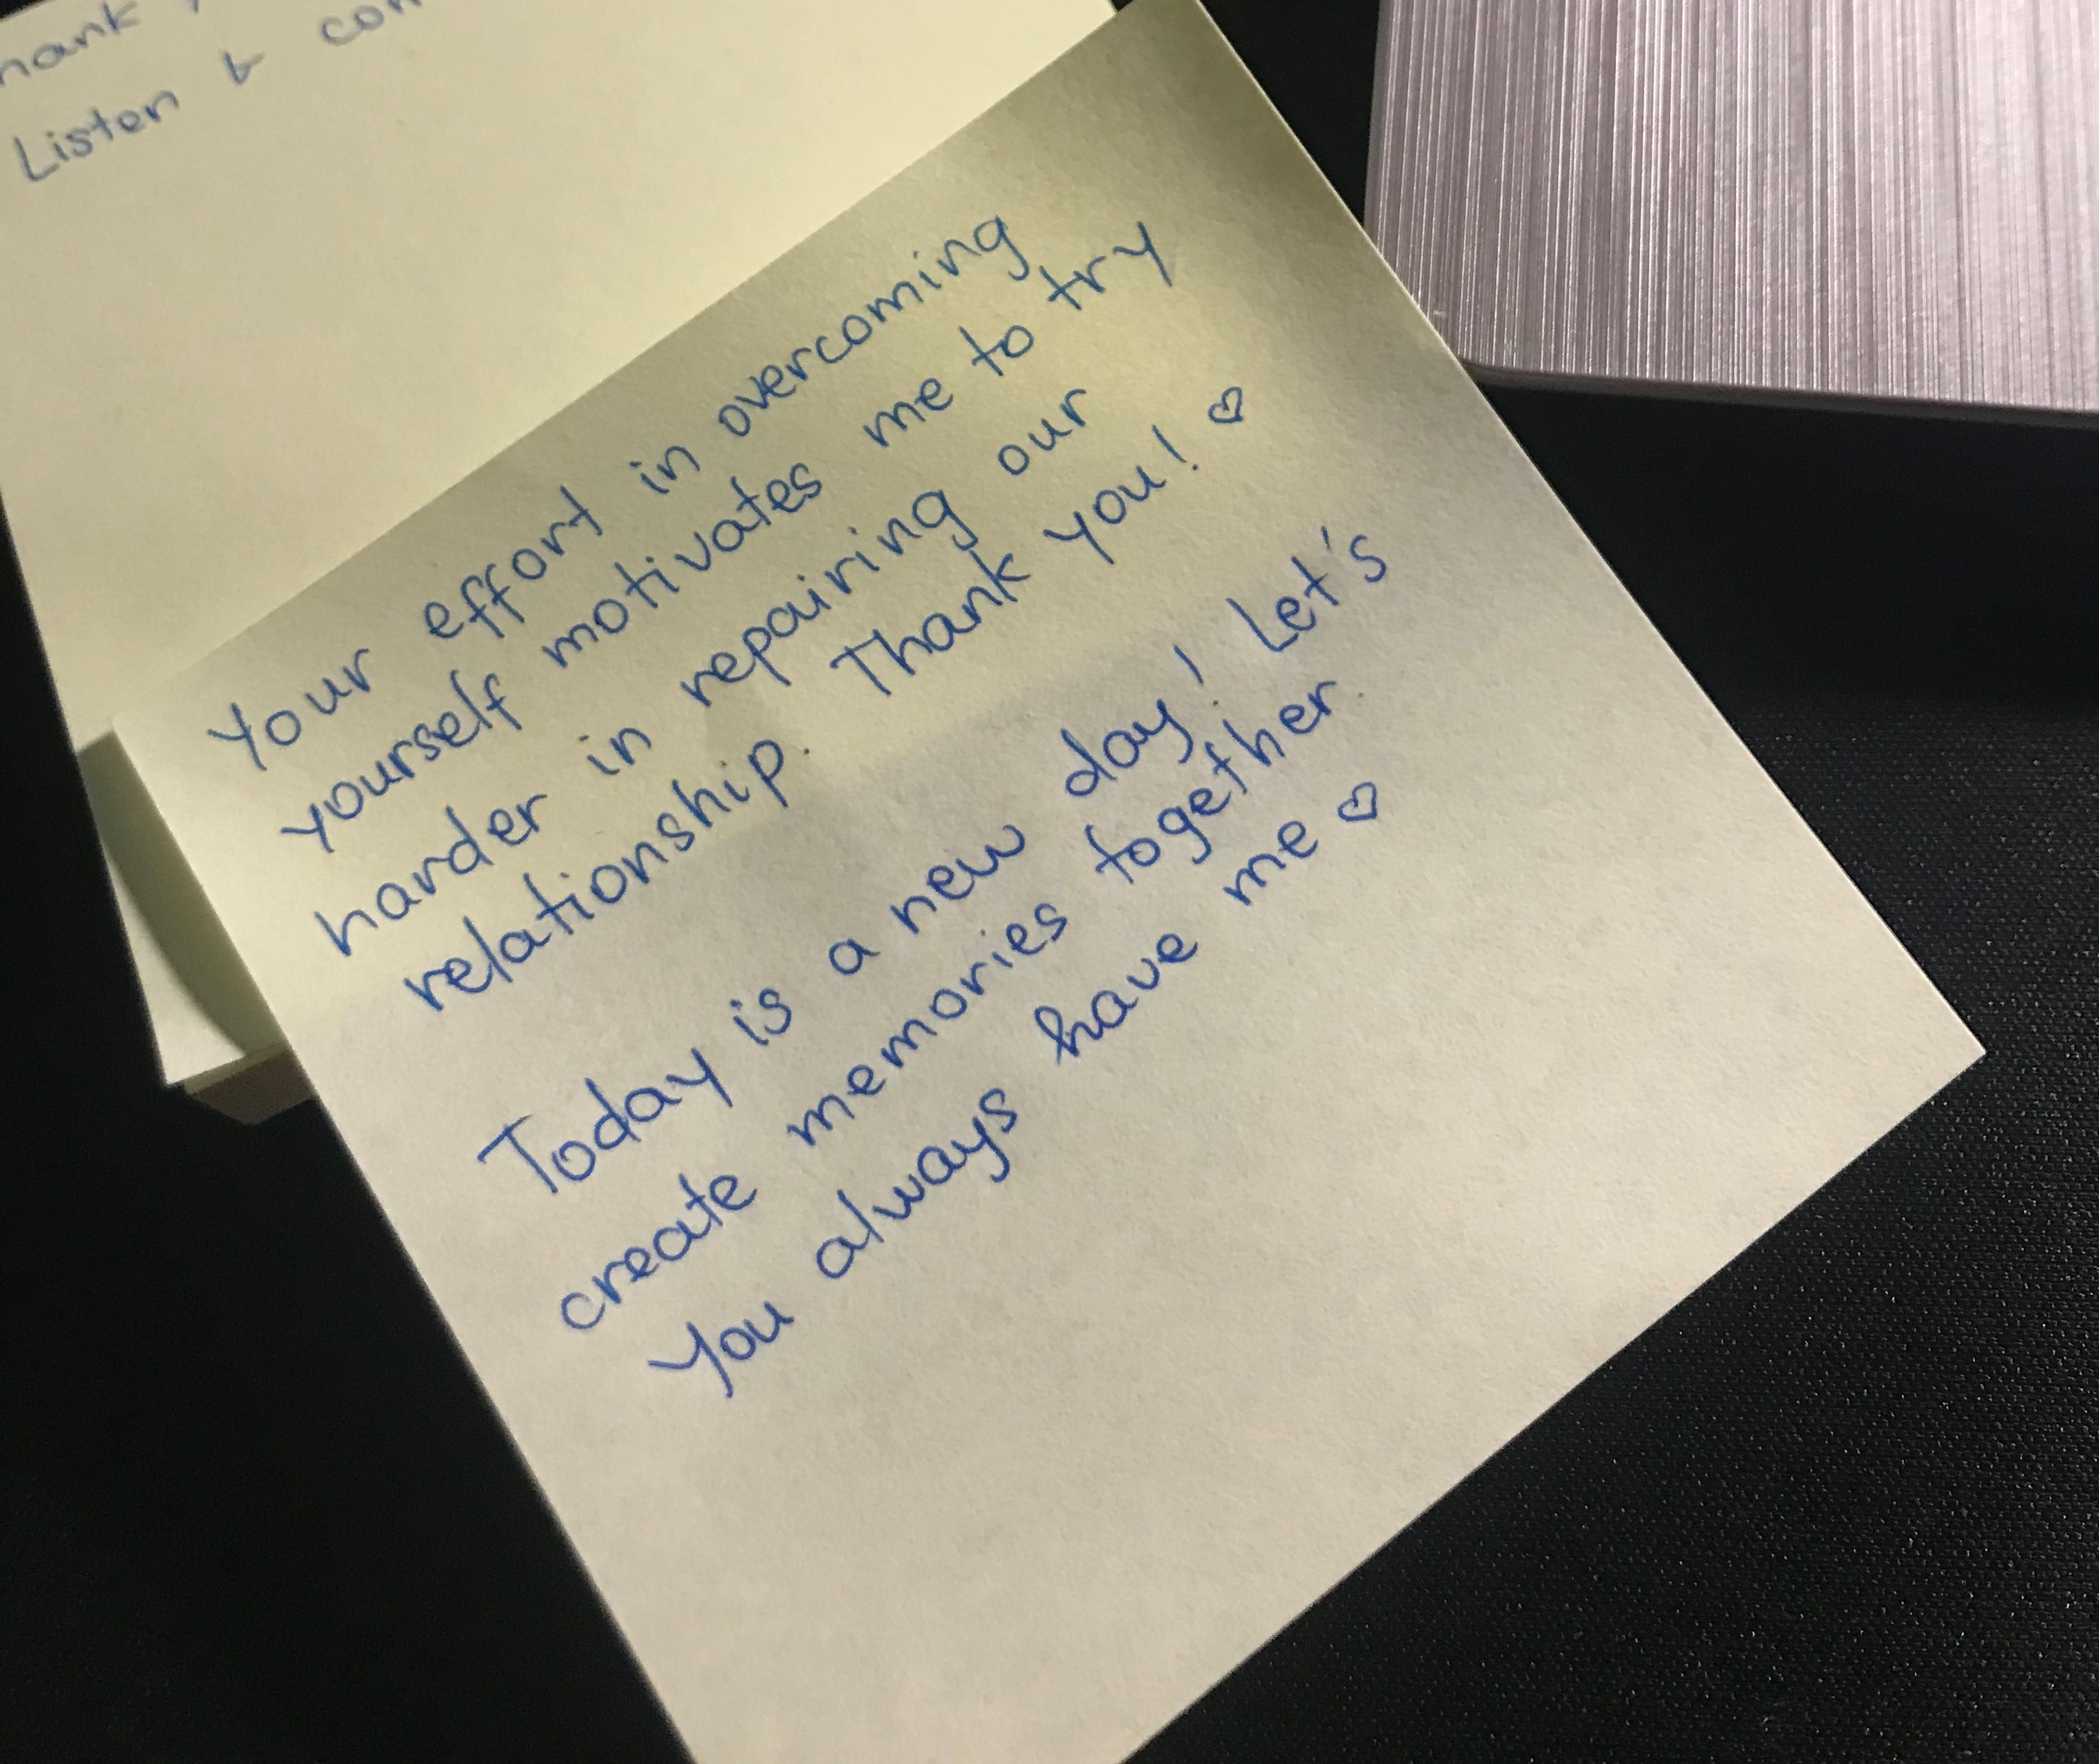 Listen &
Your effort in overcoming
yourself motivates me to try
harder in repairing our
relationship. Thank you! ♡
Today is a new day! Let's
create memories together.
You always have me ♡